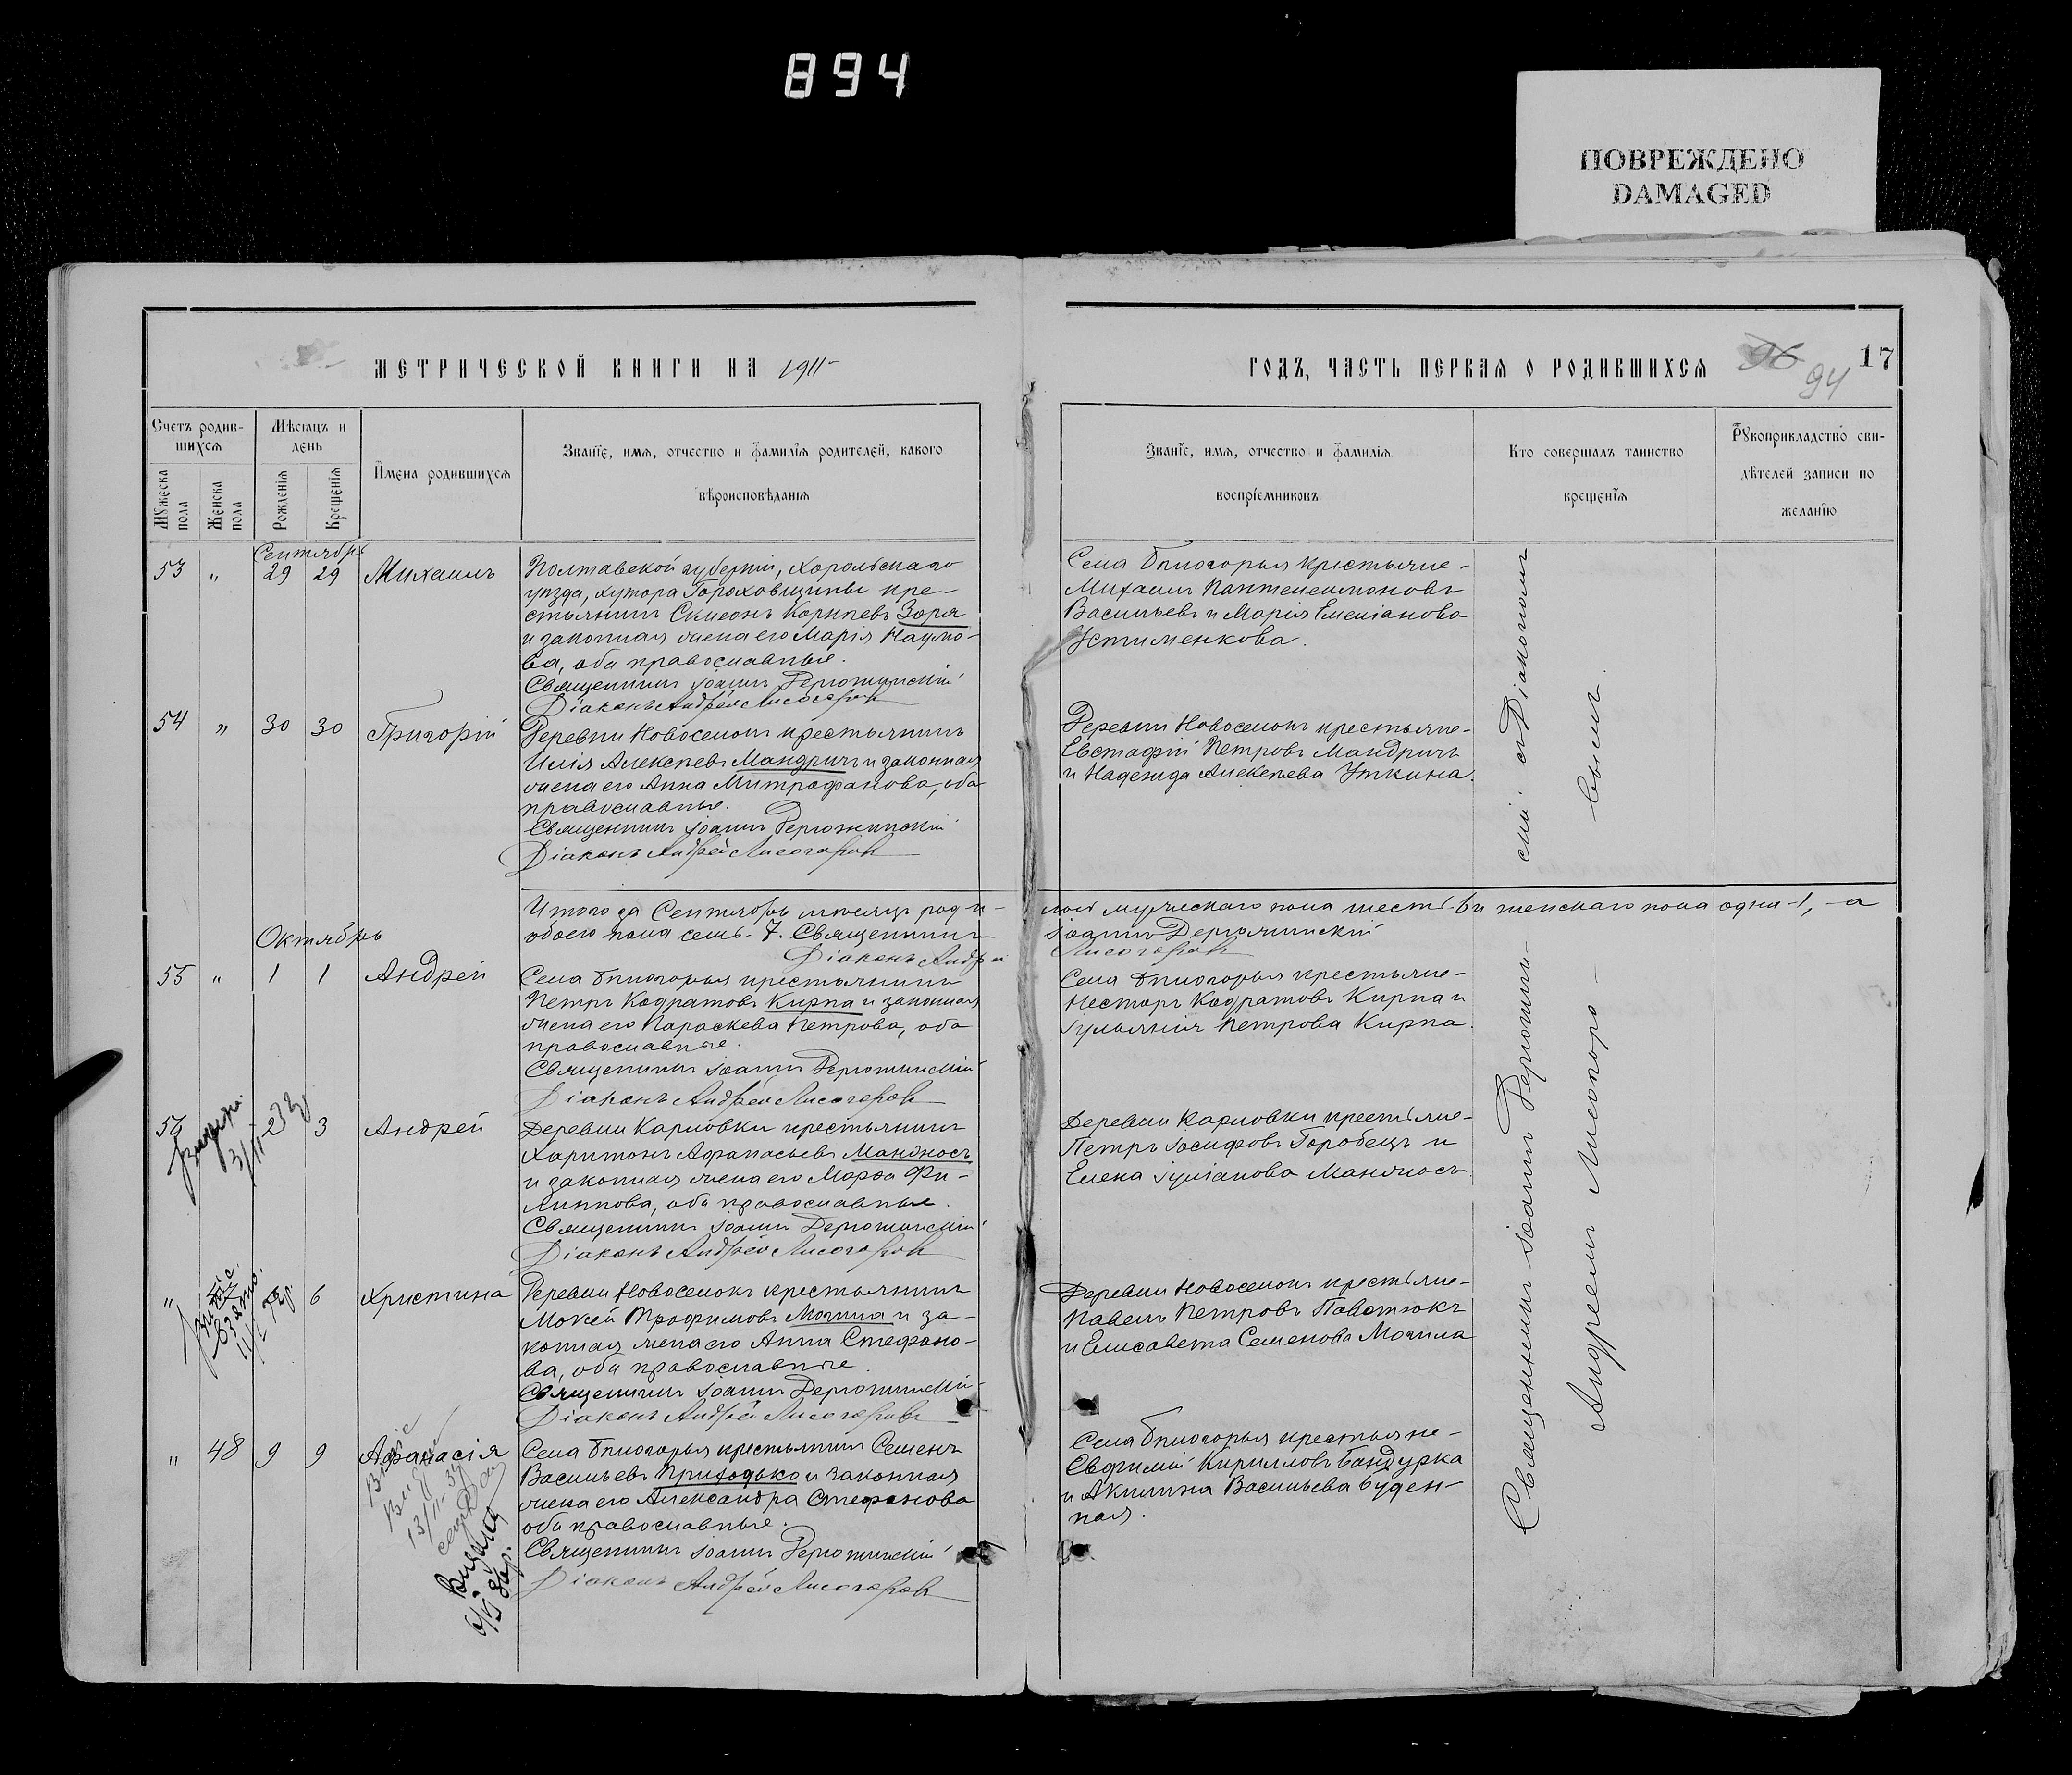 894
ПОВРЕЖДЕНО
DAMAGED
МЕТРИЧЕСКОЙ КНИГИ НА 1911
Счетъ родив-
шихся
Мужеска пола
Женска пола
Мѣсяцъ и
день
Рожденія
Крещенія
Имена родившихся
Званіе, имя, отчество и фамилія родителей, какого
вѣроисповѣданія
Сентябрь
53 " 29 29 Михаилъ
Полтавской губерніи, Хорольскаго
уѣзда, хутора Гороховщины кре-
стьянинъ Симеонъ Корнѣевъ Зоря
и законная жена его Марія Наумо-
ва, оба православные.
Священникъ Іоаннъ
Діаконъ Андрей Лисогоровъ
54 " 30 30 Григорій
Деревни Новоселокъ крестьянинъ
Илія Алексѣевъ Мандричъ и законная
жена его Анна Митрофанова, оба
православные.
Священникъ Іоаннъ
Діаконъ Андрей Лисогоровъ
Итого за Сентябрь мѣсяцъ роди-
обоего пола семь-7. Священникъ
Діаконъ Андрей
Октябрь
55 " 1 1 Андрей
Села Бѣлогорья крестьянинъ
Петръ Кодратовъ Кирпа и законная
жена его Параскева Петрова, оба
православные.
Священникъ Іоаннъ
Діаконъ Андрей Лисогоровъ
56 2 3 Андрей
Деревни Карловки крестьянинъ
Харитонъ Афанасьевъ Манжосъ
и законная жена его Марѳа Фи-
липпова, оба православные.
Священникъ Іоаннъ
Діаконъ Андрей Лисогоровъ
" 6 Христина
Деревни Новоселокъ крестьянинъ
Мокей Трофимовъ Могила и за-
конная жена его Анна Стефано-
ва, оба православные.
Священникъ Іоаннъ
Діаконъ Андрей Лисогоровъ
" 48 9 9 Афанасія
Села Бѣлогорья крестьянинъ Семенъ
Васильевъ Приходько и законная
жена его Александра Стефанова
оба православные.
Священникъ Іоаннъ
Діаконъ Андрей Лисогоровъ
ГОДЪ, ЧАСТЬ ПЕРВАЯ О РОДИВШИХСЯ
96
94
17
Званіе, имя, отчество и фамилія
воспріемниковъ
Кто совершалъ таинство
крещенія
Рукоприкладство сви-
дѣтелей записи по
желанію
Села Бѣлогорья крестьяне-
Михаилъ Пантелеимоновъ
Васильевъ и Марія Емеліанова
Устименкова.
Деревни Новоселокъ крестьяне-
Евстафій Петровъ Мандричъ
и Надежда Алексѣева Уткина.
лось мужескаго пола шесть-6 и женскаго пола одна-1, -а
Іоаннъ
Лисогоровъ
Села Бѣлогорья крестьяне-
Несторъ Кодратовъ Кирпа и
Іуліанія Петрова Кирпа.
Деревни Карловки крестьяне-
Петръ Іосифовъ Горобецъ и
Елена Іуліанова Манжосъ.
Деревни Новоселокъ крестьяне-
Павелъ Петровъ Павлюкъ
и Елисавета Семенова Могила
Села Бѣлогорья крестьяне-
Евфимій Кирилловъ Бандурка
и Акилина Васильева Буден-
ная.
Священникъ Іоаннъ
скій съ Діакономъ
Андреемъ Лисогоро-
вымъ.